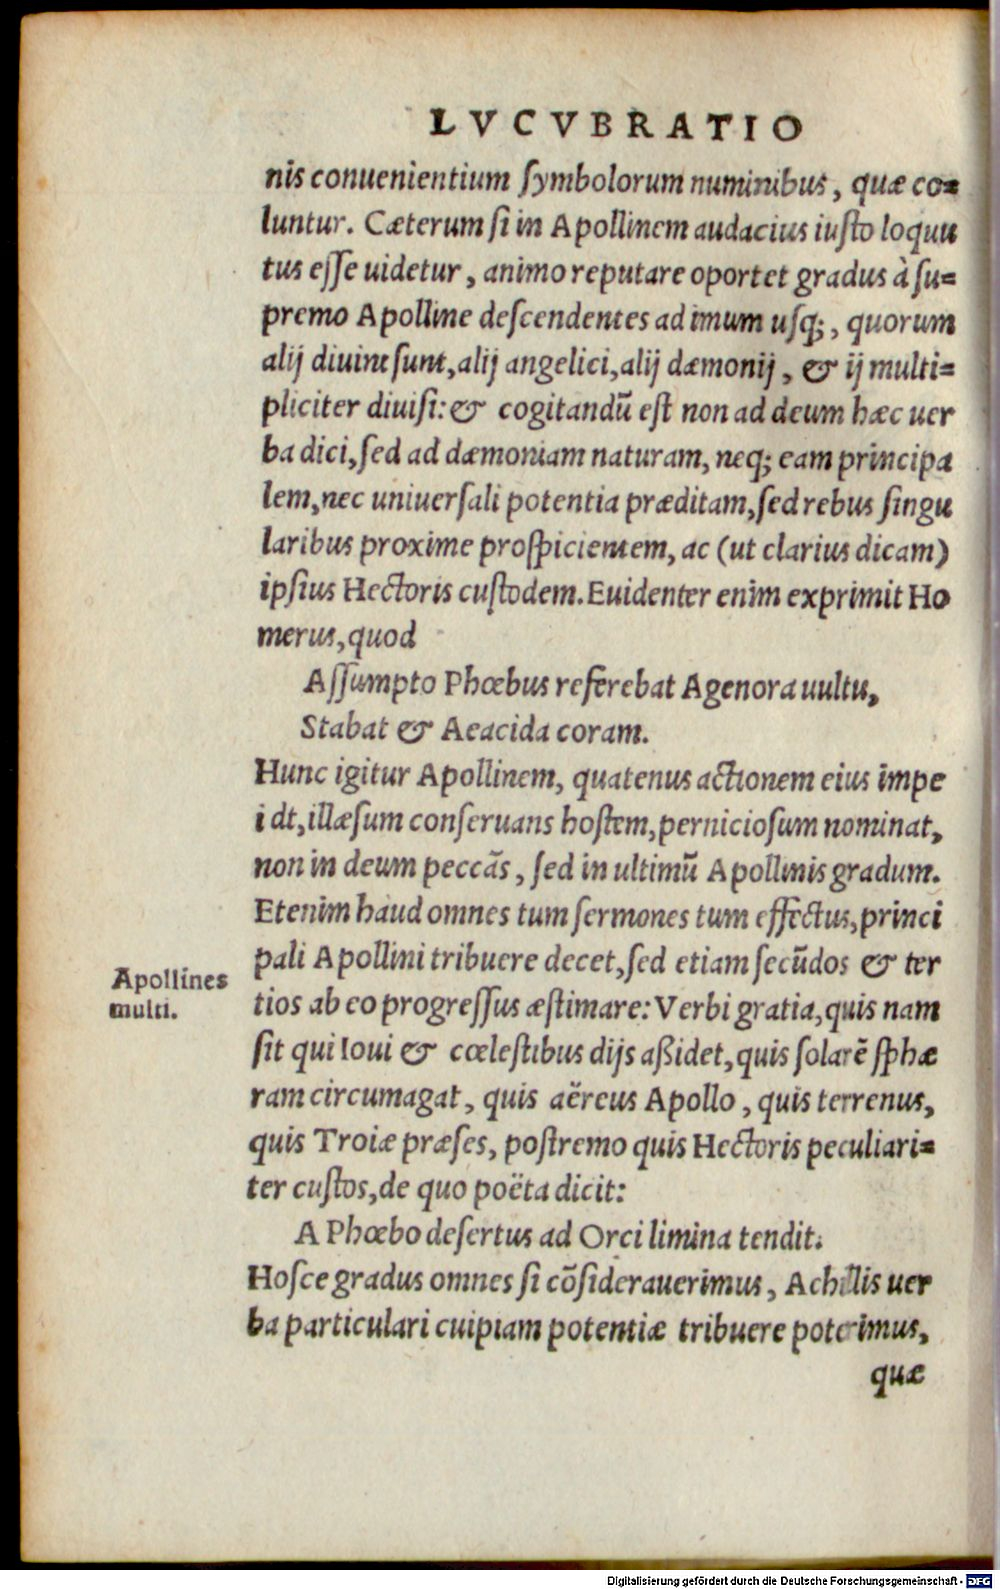 LVCVBRATIO
nis conuenientium symbolorum numinibus, quæ co=
luntur. Cæterum si in Apollinem audacius iusto loquu
tus esse uidetur, animo reputare oportet gradus à su=
premo Apolline descendentes ad imum usq;, quorum
alij diuini sunt, alij angelici, alij dæmonij, & ij multi=
pliciter diuisi: & cogitandū est non ad deum hæc uer
ba dici, sed ad dæmoniam naturam, neq; eam principa
lem, nec uniuersali potentia præditam, sed rebus singu
laribus proxime prospicientem, ac (ut clarius dicam)
ipsius Hectoris custodem. Euidenter enim exprimit Ho
merus, quod
Assumpto Phœbus referebat Agenora uultu,
Stabat & Aeacida coram.
Hunc igitur Apollinem, quatenus actionem eius impe
i dt, illæsum conseruans hostem, perniciosum nominat,
non in deum peccās, sed in ultimū Apollinis gradum.
Etenim haud omnes tum sermones tum effectus, princi
pali Apollini tribuere decet, sed etiam secūdos & ter
Apollines
multi.
tios ab eo progressus æstimare: Verbi gratia, quis nam
sit qui Ioui & cœlestibus dijs aßidet, quis solarē sphæ
ram circumagat, quis aëreus Apollo, quis terrenus,
quis Troiæ præses, postremo quis Hectoris peculiari=
ter custos, de quo poëta dicit:
A Phœbo desertus ad Orci limina tendit.
Hosce gradus omnes si cōsiderauerimus, Achillis uer
ba particulari cuipiam potentiæ tribuere poterimus,
quæ
Digitalisierung gefördert durch die Deutsche Forschungsgemeinschaft - DFG